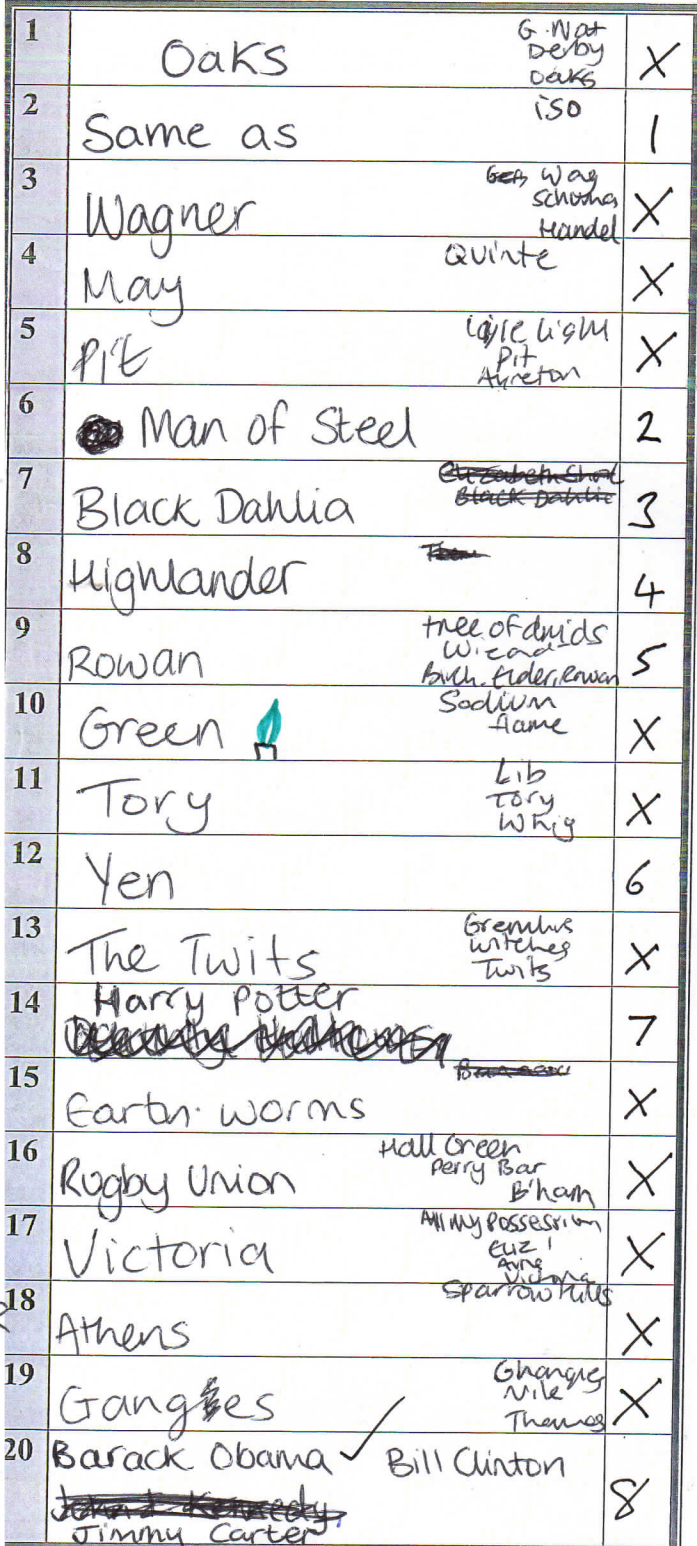 1
Oaks
G. Nat
Derby
Oaks
X
2
Same as
iso
1
3
Wagner
Wag
Schuma
Handel
X
4
May
Quinte
X
5
Pit
light
Pit
Ayreton
X
6
Man of Steel
2
7
Black Dahlia
Black Dahlia
3
8
Highlander
4
9
Rowan
tree of druids
Birch. Elder, Rowan
5
10
Green
Sodium
flame
X
11
Tory
Lib
Tory
Whig
X
12
Yen
6
13
The Twits
Gremlins
Witches
Twits
X
14
Harry Potter
7
15
Earth worms
X
16
Rugby Union
Hall Green
Perry Bar
B'ham
X
17
Victoria
All my possession
Eliz 1
Anne
Victoria
X
18
Athens
Sparrow Hills
X
19
Ganges
Ghanges
Nile
Thames
X
20
Barack Obama ✓ Bill Clinton
John F Kennedy
Jimmy Carter
8